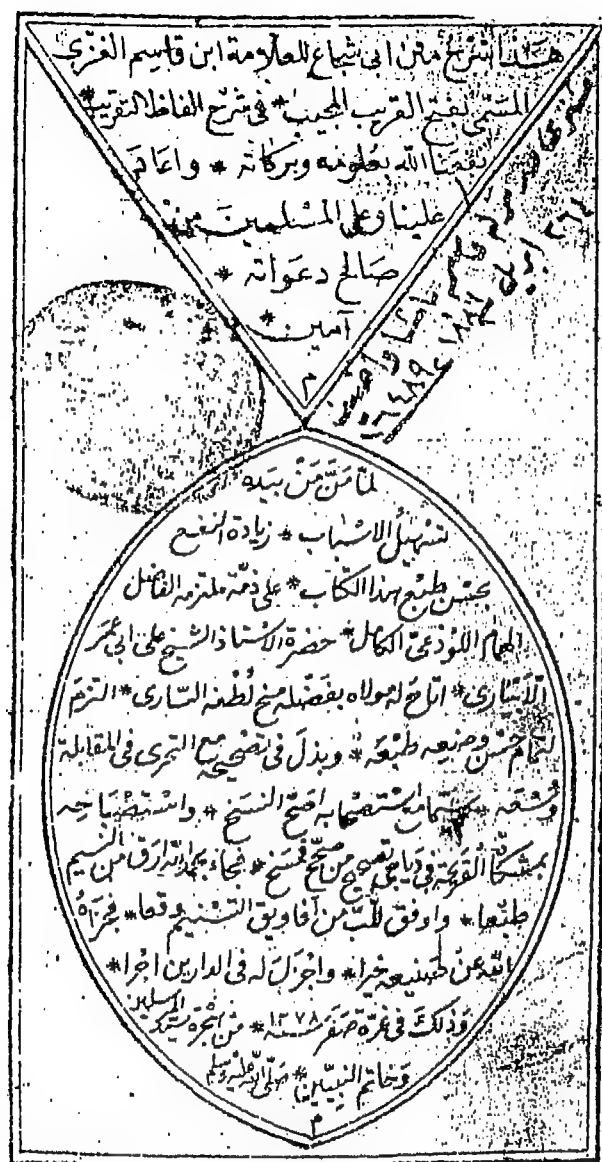 هذا شرح متن ابى شجاع للعلامة ابن قاسيم الغزى
المسمى بفتح القريب المجيب * فى شرح الفاظ التقريب *
نفعنا الله بعلومه وبركاته * واعاد
علينا وعلى المسلمين من
صالح دعواته *
آمين *
م
قاسم باشا
٢٦ ابريل ١٨٨٦
لمّا مَنَّ مَنْ بيده
تسهيلُ الاسباب * زيادة النفع
بحسن طبع هذا الكتاب * على ذمّة ملتزمه الفاضل
الهمام اللوذعىّ الكامل * حضرة الاستاذ الشيخ على ابى عمر
اتاح له مولاه بفضله منح لُطفه السارى * التزمَ
حُسْن وضيعه طبْعَه * وبذلَ فى تصحيحه مع التحرى فى المقابلة
وُسْعَه * استصحابه اصحّ النسخ * واستصباحه
القريحة فى دياجى فجاء بحمد الله ارَقَّ من النسيم
طبْعا * واوفقَ للّب من آفاويق التسنيم وقعا * فجزاه
الله عن صنيعه خيرا * واجزلَ له فى الدارين اجْرا *
وذلك فى غرّة صَفَر سنة ١٢٧٨ * من هجرة سيد المرسلين
وخاتم النبيّين * صلّى الله عليه وسلم
م